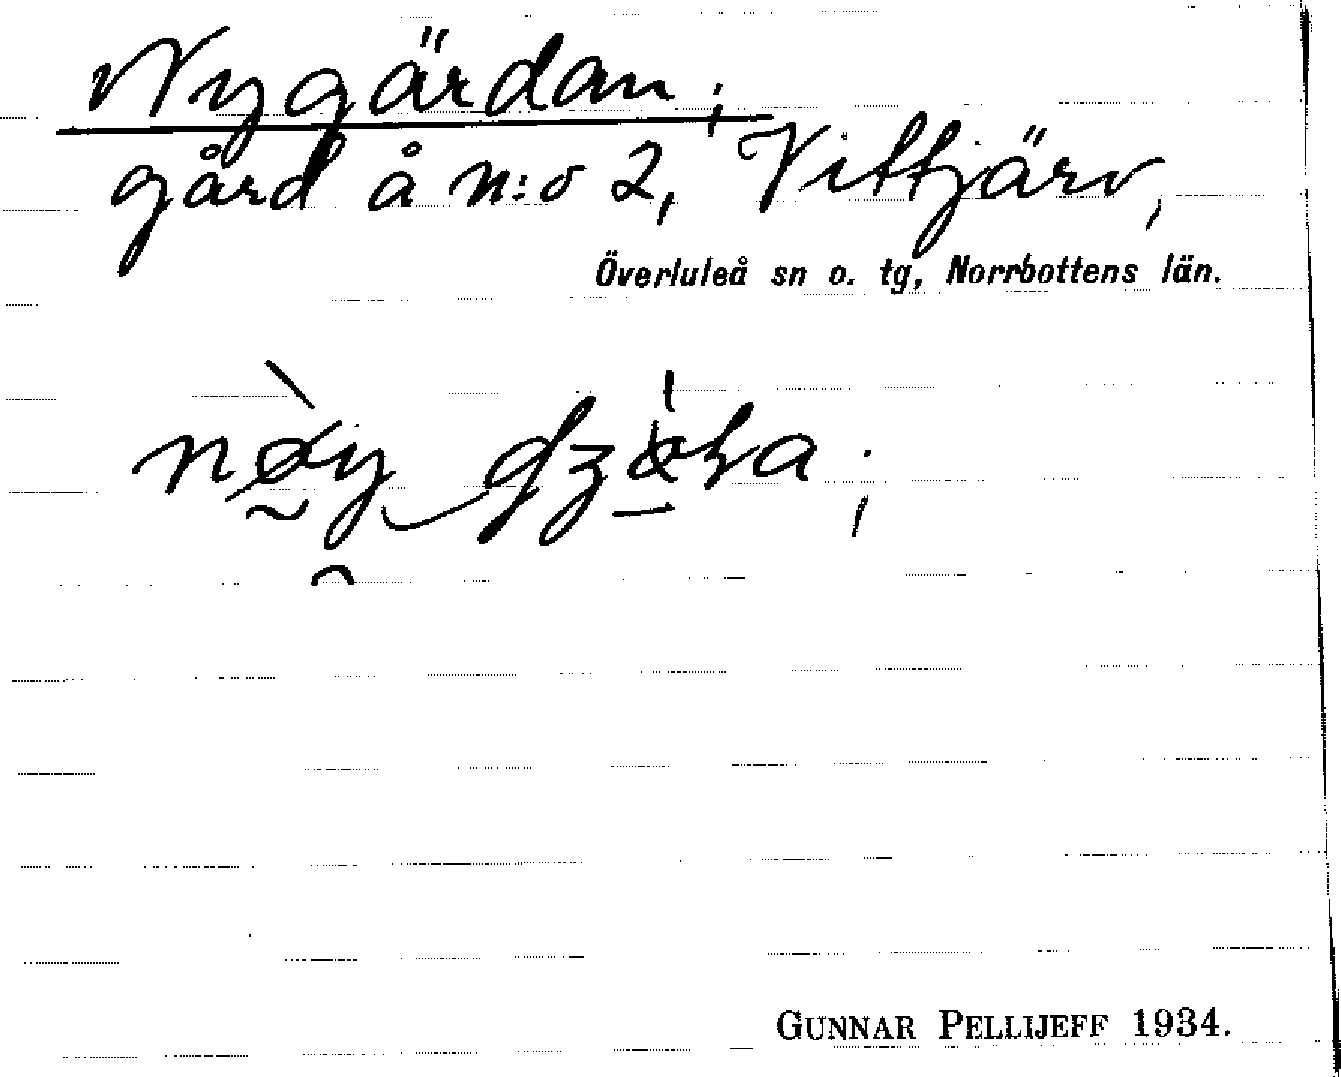 Nygärdan;
gård å n:o 2, Vittjärv,
Överluleå sn o. tg, Norrbottens län.
GUNNAR PELLIJEFF 1934.